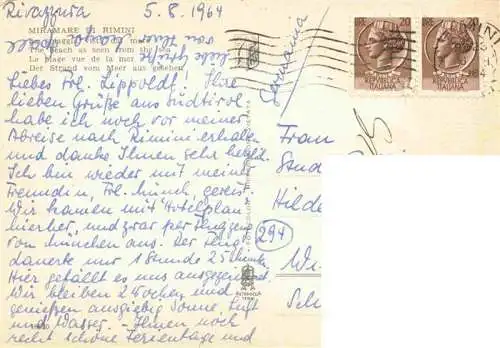 Rivazzura 5.8.1964
MIRAMARE DI RIMINI
The beach as seen from the sea
La plage vue de la mer
Der Strand vom Meer aus gesehen
Liebes Frl. Lippold! Ihre
lieben Grüße aus Südtirol
habe ich noch vor meiner
Abreise nach Rimini erhalten
und danke Ihnen sehr herzl.
Ich bin wieder mit meiner
Freundin, Frl. Münch, gereist.
Wir kamen mit Hotelplan
hierher, und zwar per Flugzeug
von München aus. Der Flug
dauerte nur 1 Stunde 25 Minuten.
Hier gefällt es uns ausgezeichnet.
Wir bleiben 2 Wochen und
genießen ausgiebig Sonne, Luft
und Wasser. - Ihnen noch
recht schöne Ferientage und
liebe Grüße
von Ihrer
Germania
Frau
Stud
Hilde
294
Wi
Sch
REPUBBLICA
ITALIANA
REPUBBLICA
ITALIANA